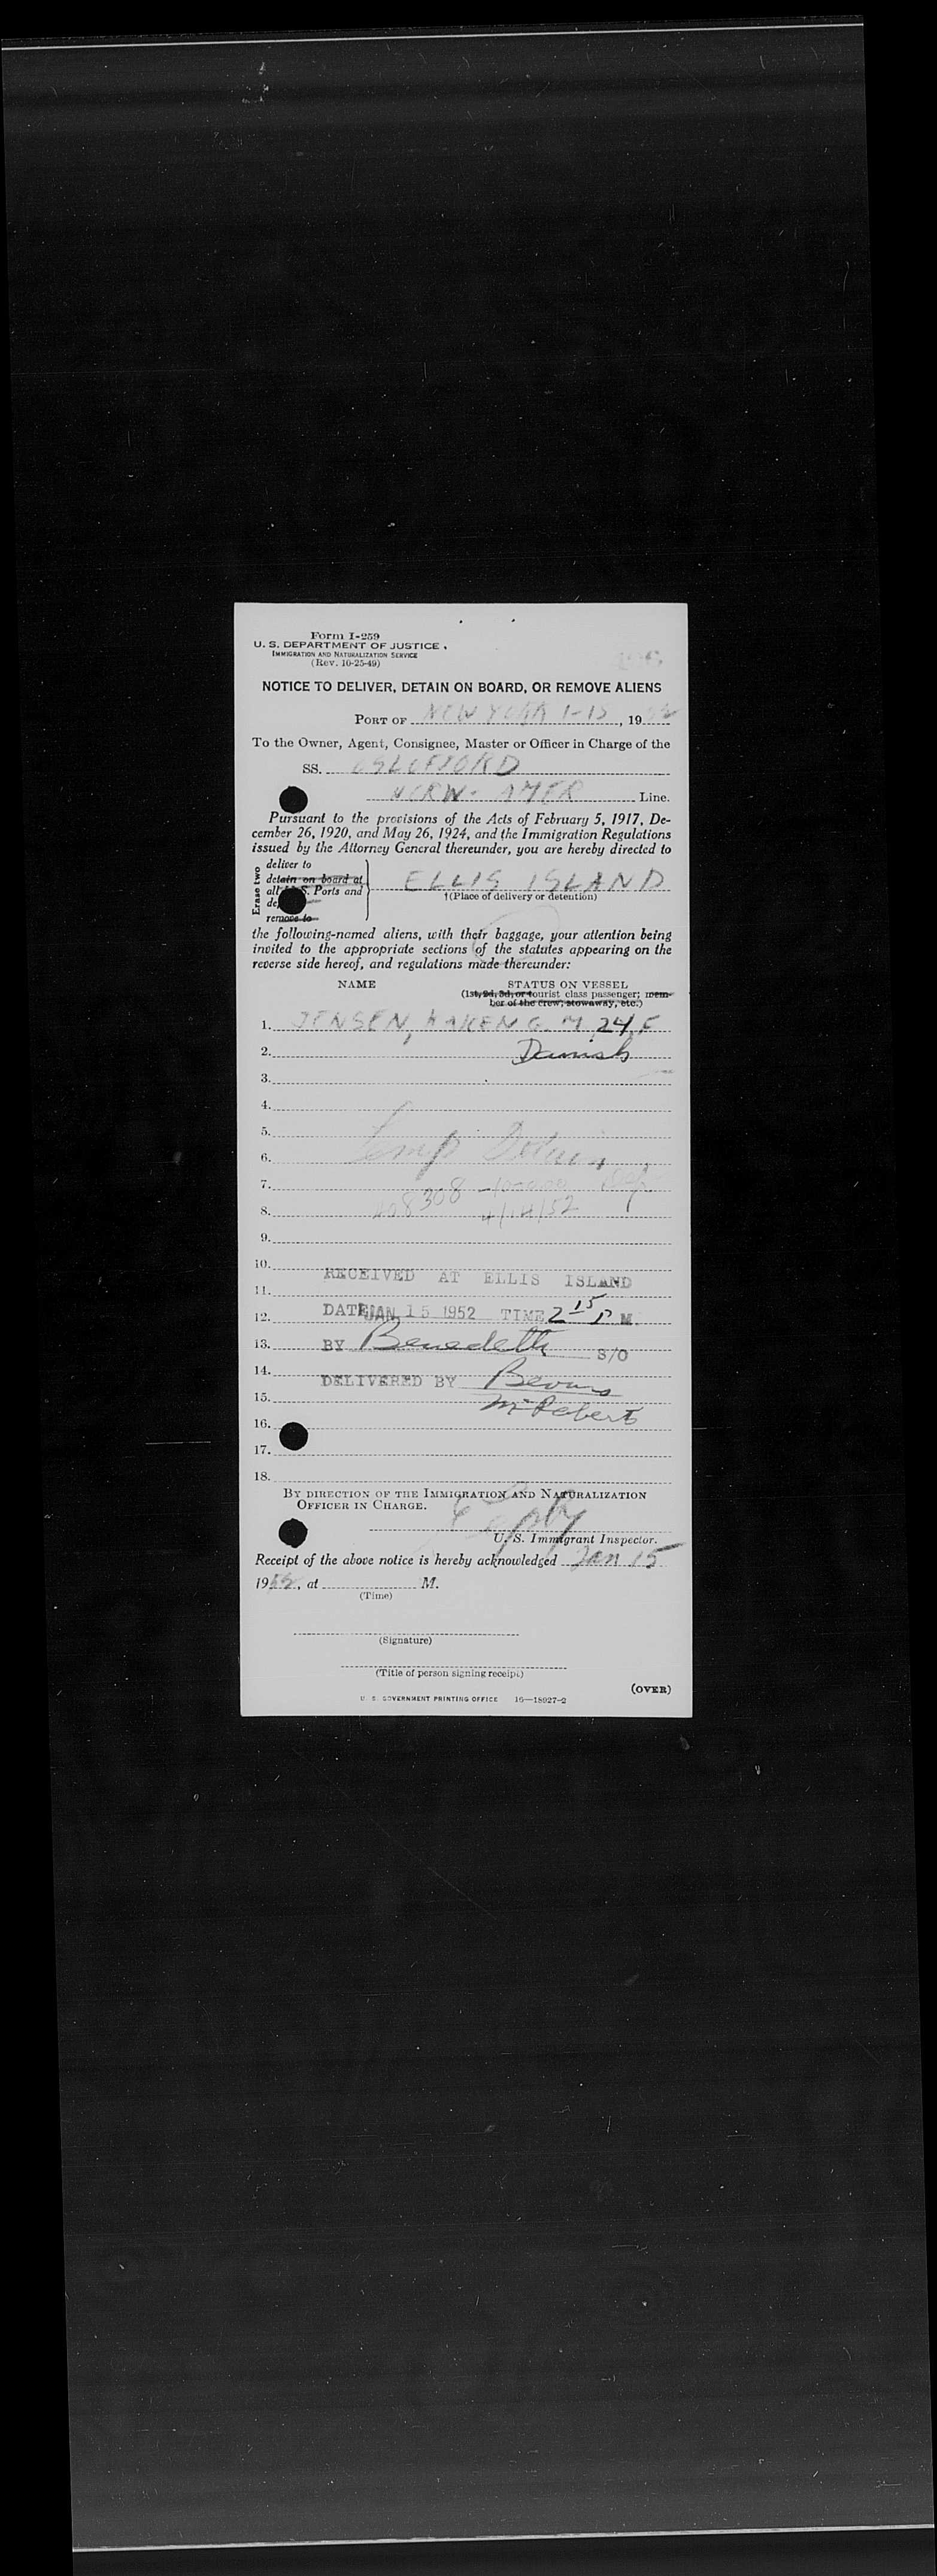 Form I-259
U. S. DEPARTMENT OF JUSTICE
IMMIGRATION AND NATURALIZATION SERVICE
(Rev. 10-25-49)
NOTICE TO DELIVER, DETAIN ON BOARD, OR REMOVE ALIENS
PORT OF NEW YORK 1-15, 1952
To the Owner, Agent, Consignee, Master or Officer in Charge of the
SS. OSLOFJORD
NORW- AMER Line.
Pursuant to the provisions of the Acts of February 5, 1917, De-
cember 26, 1920, and May 26, 1924, and the Immigration Regulations
issued by the Attorney General thereunder, you are hereby directed to
Erase two
deliver to
detain on board at
all S. Ports and
remove to
ELLIS ISLAND
†(Place of delivery or detention)
the following-named aliens, with their baggage, your attention being
invited to the appropriate sections of the statutes appearing on the
reverse side hereof, and regulations made thereunder:
NAME STATUS ON VESSEL
(1st, 2d, 3d, or tourist class passenger; mem-
ber of the crew; stowaway, etc.)
1. JENSEN, KAREN G. M. 24, F
2. Danish
3.
4.
5.
6. Temp Detain
7.
8. 308 4/14/52
9.
10.
RECEIVED AT ELLIS ISLAND
11.
12. DATE JAN 15 1952 TIME 2 15 P M
13. BY Benedetti S/O
14. DELIVERED BY Bevans
15. McRoberts
16.
17.
18.
BY DIRECTION OF THE IMMIGRATION AND NATURALIZATION
OFFICER IN CHARGE.
U. S. Immigrant Inspector.
Receipt of the above notice is hereby acknowledged Jan 15
1952, at M.
(Time)
(Signature)
(Title of person signing receipt)
(OVER)
U. S. GOVERNMENT PRINTING OFFICE 16—18927-2